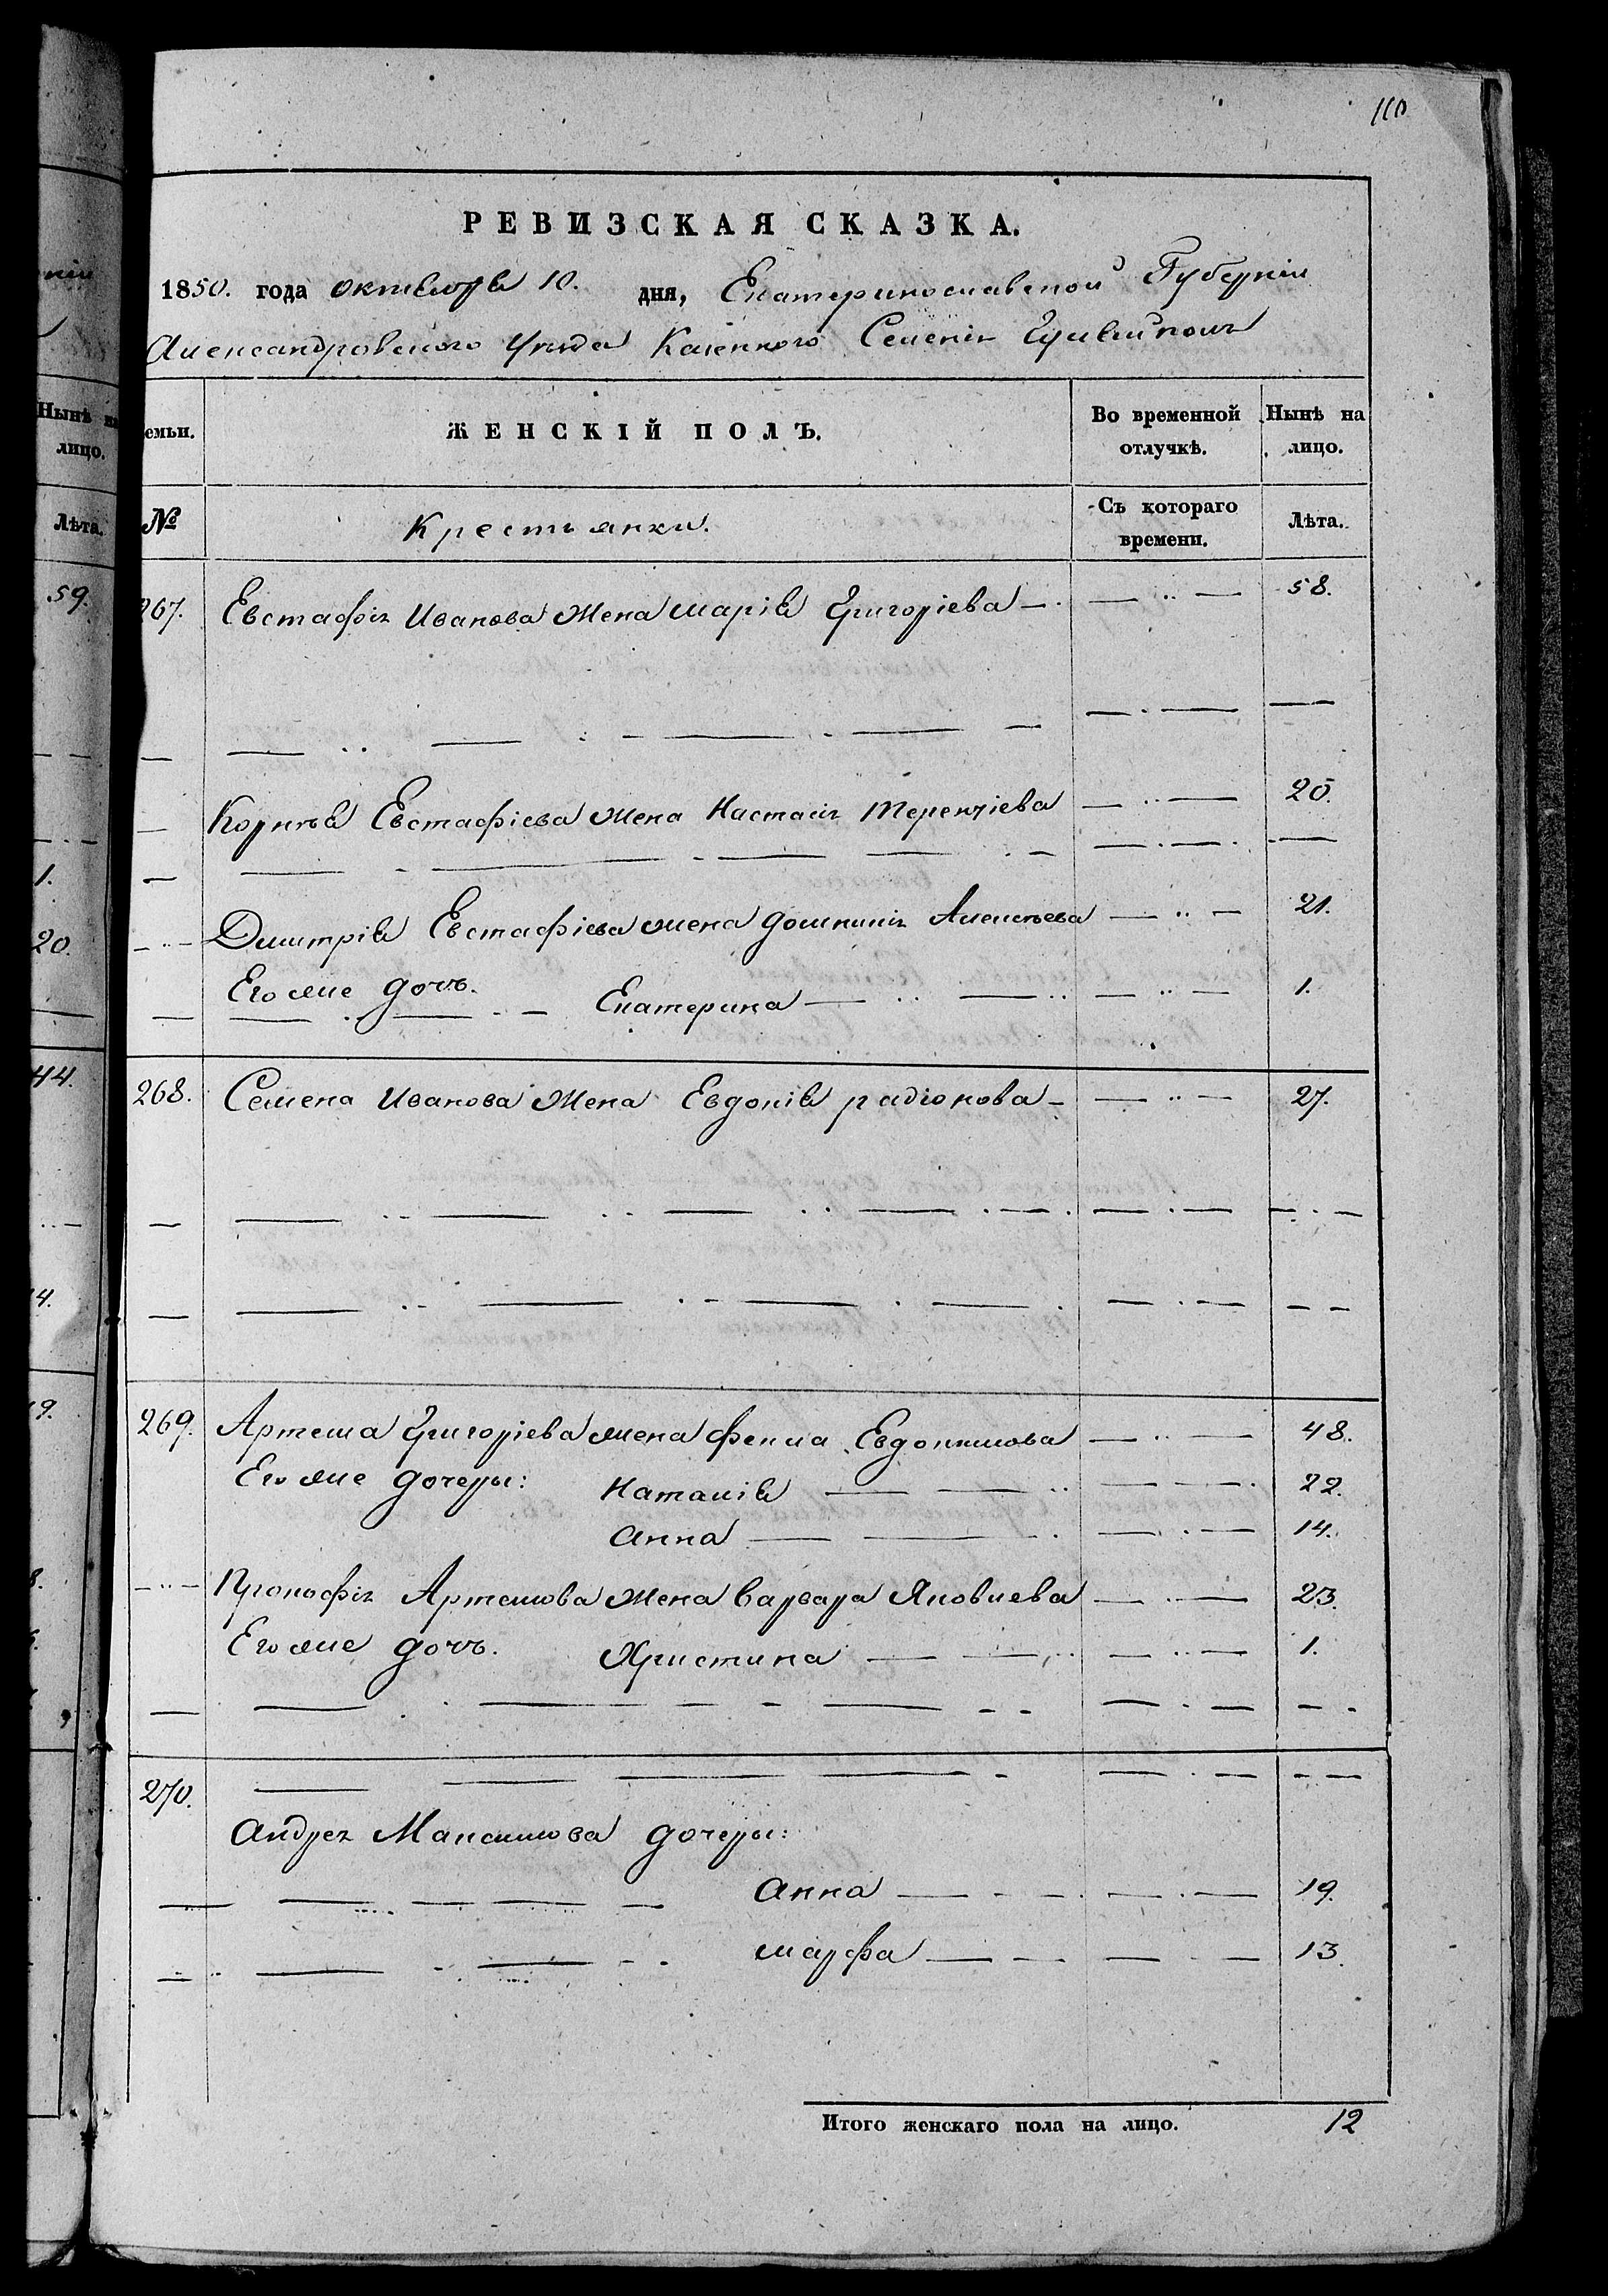 110
РЕВИЗСКАЯ СКАЗКА.
1850. года октября 10. дня, Екатеринославской Губерніи
Александровского Уезда Казенного Селенія Гуляйполя
Нынѣ на лицо.
Лѣта.
59.
1.
20.
44.
емьи. ЖЕНСКІЙ ПОЛЪ. Во временной отлучкѣ. Нынѣ на лицо.
№ Крестьянки. Съ котораго времени. Лѣта.
267. Евстафія Иванова жена марія Григоріева — 58.
Корнѣя Евстафіева жена Настасія Терентіева 20.
Димитрія Евстафіева жена домникія Алексѣева 21.
Его же дочь. Екатерина 1.
268. Семена Иванова жена Евдокія радіонова — 27.
269. Артема Григоріева жена фекла Евдокимова 48.
Его же дочеры: Наталія 22.
Анна 14.
Прокофія Артемова жена Варвара Яковлева 23.
Его же дочь. Христина 1.
270.
Андрея Максимова дочеры:
Анна 19.
марфа 13.
Итого женскаго пола на лицо. 12